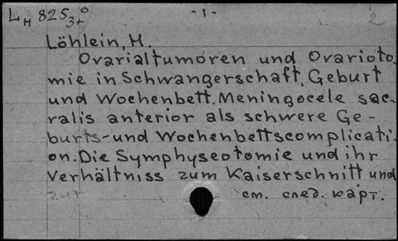 Lн 825 3+0 -1- 2
Löhlein, M.
Ovarialtumoren und Ovarioto-
mie in Schwangerschaft, Geburt
und Wochenbett. Meningocele sac-
ralis anterior als schwere Ge-
burts- und Wochenbettscomplicati-
on. Die Symphyseotomie und ihr
Verhältniss zum Kaiserschnitt und
см. след. карт.